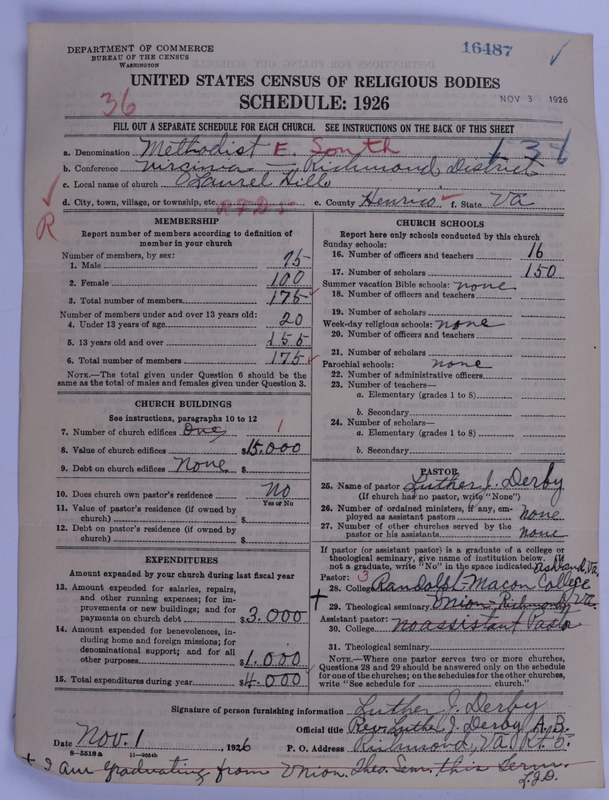 DEPARTMENT OF COMMERCE
BUREAU OF THE CENSUS
WASHINGTON
16487
UNITED STATES CENSUS OF RELIGIOUS BODIES
SCHEDULE: 1926
36
NOV 3 1926
FILL OUT A SEPARATE SCHEDULE FOR EACH CHURCH. SEE INSTRUCTIONS ON THE BACK OF THIS SHEET
a. Denomination Methodist E. South
b. Conference Virginia — Richmond District
c. Local name of church Laurel Hill
d. City, town, village, or township, etc. R.F.D. 5 e. County Henrico f. State Va
R
MEMBERSHIP
Report number of members according to definition of member in your church
Number of members, by sex:
1. Male 75
2. Female 100
3. Total number of members 175
Number of members under and over 13 years old:
4. Under 13 years of age 20
5. 13 years old and over 155
6. Total number of members 175
NOTE.—The total given under Question 6 should be the same as the total of males and females given under Question 3.
CHURCH BUILDINGS
See instructions, paragraphs 10 to 12
7. Number of church edifices One 1
8. Value of church edifices $15.000
9. Debt on church edifices None $
10. Does church own pastor's residence No
Yes or No
11. Value of pastor's residence (if owned by church) $
12. Debt on pastor's residence (if owned by church) $
EXPENDITURES
Amount expended by your church during last fiscal year
13. Amount expended for salaries, repairs, and other running expenses; for improvements or new buildings; and for payments on church debt $3.000
14. Amount expended for benevolences, including home and foreign missions; for denominational support; and for all other purposes $1.000
15. Total expenditures during year $4.000
CHURCH SCHOOLS
Report here only schools conducted by this church
Sunday schools:
16. Number of officers and teachers 16
17. Number of scholars 150
Summer vacation Bible schools: none
18. Number of officers and teachers
19. Number of scholars
Week-day religious schools: none
20. Number of officers and teachers
21. Number of scholars
Parochial schools: none
22. Number of administrative officers
23. Number of teachers—
a. Elementary (grades 1 to 8)
b. Secondary
24. Number of scholars—
a. Elementary (grades 1 to 8)
b. Secondary
PASTOR
25. Name of pastor Luther J. Derby
(If church has no pastor, write "None")
26. Number of ordained ministers, if any, employed as assistant pastors none
27. Number of other churches served by the pastor or his assistants none
If pastor (or assistant pastor) is a graduate of a college or theological seminary, give name of institution below. If not a graduate, write "No" in the space indicated. Ashland, Va.
Pastor: 3
28. College Randolph-Macon College
+ 29. Theological seminary Union, Richmond, Va.
Assistant pastor:
30. College no assistant Pastor
31. Theological seminary
NOTE.—Where one pastor serves two or more churches, Questions 28 and 29 should be answered only on the schedule for one of the churches; on the schedules for the other churches, write "See schedule for church.")
Signature of person furnishing information Luther J. Derby
Official title Rev. Luther J. Derby A.B.
Date Nov. 1, 1926 P. O. Address Richmond, Va., Rt. 5.
8—5518a 11—9034b
+ I am graduating from Union. Theo. Sem. this term.
L.J.D.